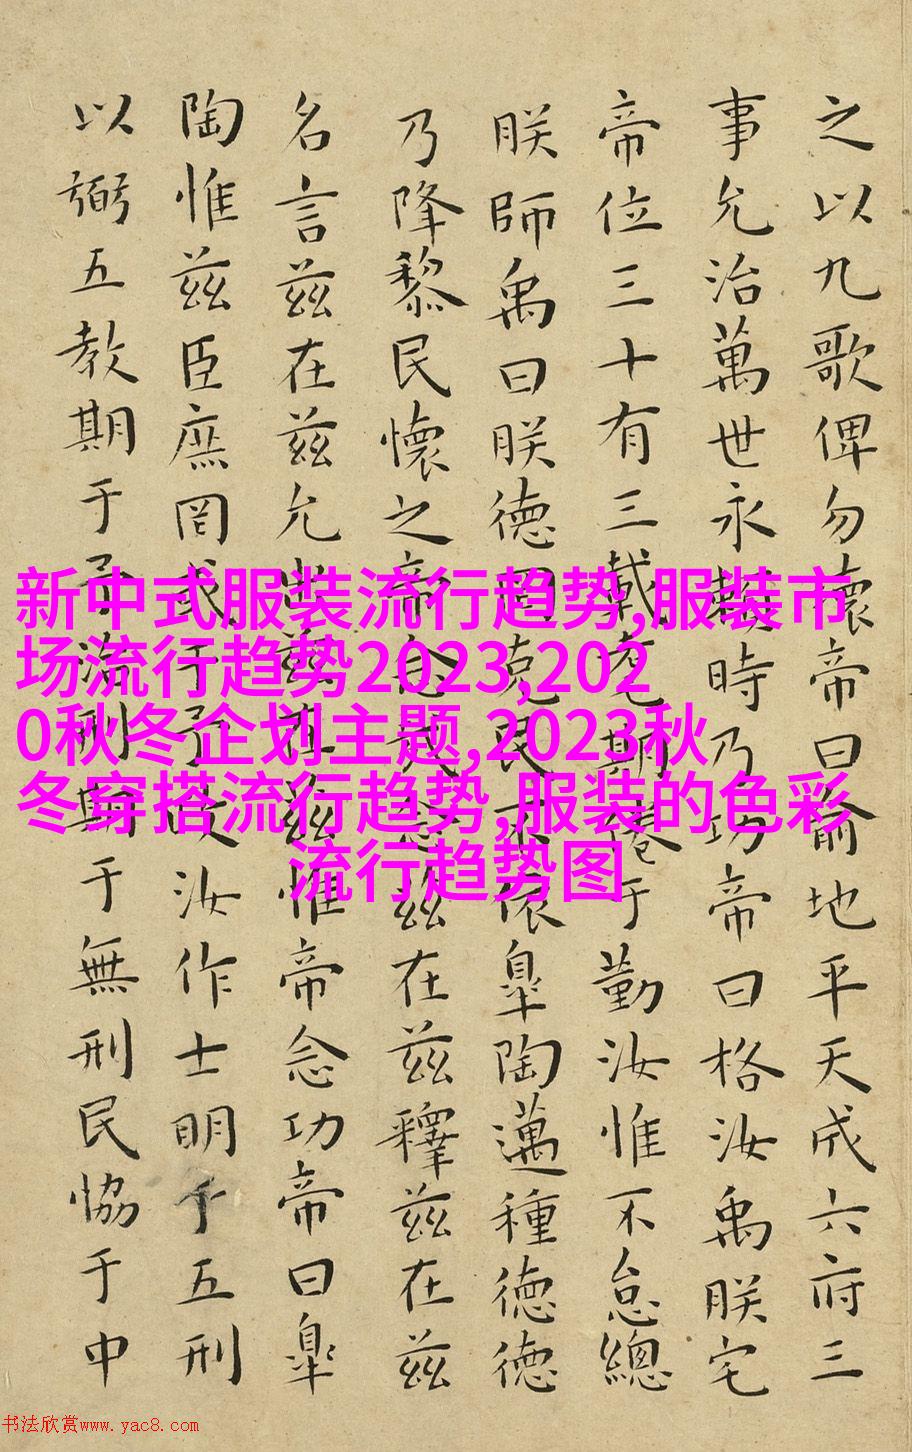 之以九歌俾勿壞帝曰俞地平天成六府三
事允治萬世永賴時乃功帝曰格汝禹朕宅
帝位三十有三載耄期倦于勤汝惟不怠總
朕師禹曰朕德罔克民不依皐陶邁種德德
乃降黎民懷之帝念哉念兹在兹釋兹在兹
名言兹在兹允出兹在兹惟帝念功帝曰皐
陶惟兹臣庶罔或于予汝作士明于五刑
以弼五教期于予治刑期于無刑民恊于中
新中式服装流行趋势,服装市
场流行趋势2023,202
0秋冬企划主题,2023秋
冬穿搭流行趋势,服装的色彩
流行趋势图
书法欣赏www.yac8.com